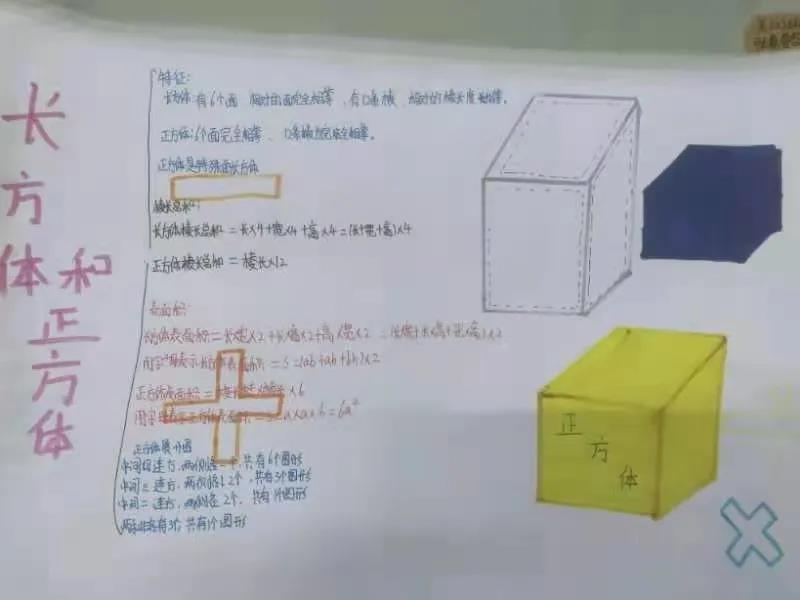 长方体和正方体
特征:
长方体:有6个面 相对的面完全相等,有12条棱,相对的棱长度相等。
正方体:6个面完全相等、12条棱完全相等。
正方体是特殊的长方体
棱长总和:
长方体棱长总和=长×4+宽×4+高×4=(长+宽+高)×4
正方体棱长总和=棱长×12
表面积:
长方体表面积=长宽×2+长高×2+高宽×2=(长宽+长高+宽高)×2
用字母表示长方体表面积=S=(ab+ah+bh)×2
正方体表面积=棱长×6
用字母表示正方体表面积=a×a×6=6a²
正方体展开图
中间四连方,两侧各一个,共有6个图形
中间三连方,两侧各1、2个,共有3个图形
中间二连方,两侧各2个,共有1个图形
两排各有3个,共有1个图形
正方体